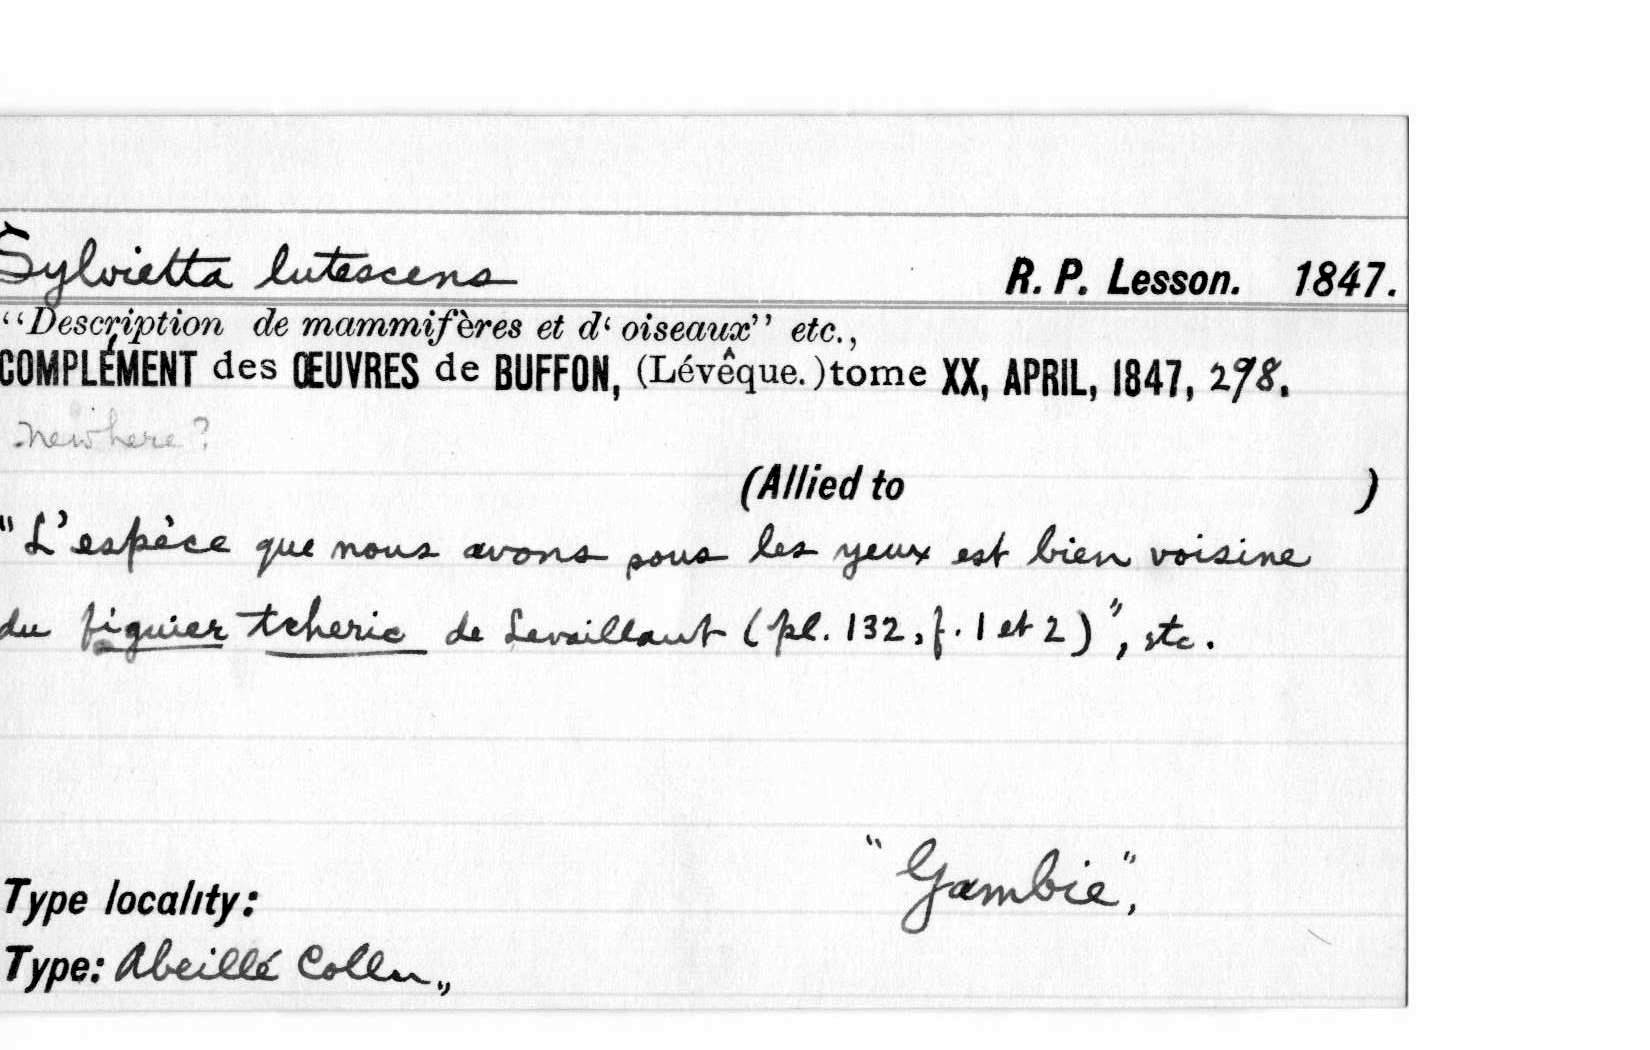 Sylvietta lutescens R. P. Lesson. 1847.
“Description de mammifères et d‘ oiseaux” etc.,
COMPLÉMENT des ŒUVRES de BUFFON, (Lévêque.) tome XX, APRIL, 1847, 298.
new here?
(Allied to )
"L'espèce que nous avons sous les yeux est bien voisine
du figuier tcheric de Levaillant (pl. 132, f. 1 et 2)", etc.
"Gambie",
Type locality:
Type: Abeillé Colln.,